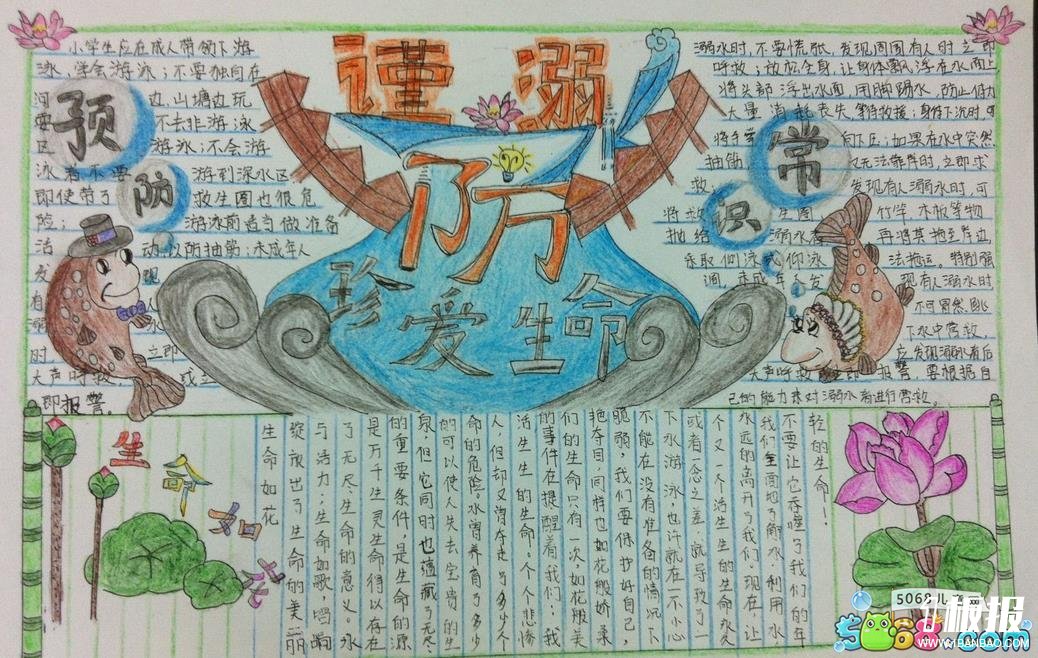 谨
溺
防
珍爱生命
预
防
小学生应在成人带领下游
泳，学会游泳；不要独自在
河边、山塘边玩
要不去非游泳
区游泳；不会游
泳者不要游到深水区
即使带了救生圈也很危
险；游泳前适当做准备
活动，以防抽筋；未成年人
发现
有
溺水
时立即
大声呼救，或立
即报警。
常
识
溺水时，不要慌张，发现周围有人时立即
呼救；放松全身，让身体飘浮在水面上，
将头部浮出水面，用脚踢水，防止体力
大量消耗丧失，等待救援；身体下沉时，可
将手掌向下压；如果在水中突然
抽筋，又无法靠岸时，立即求
救。发现有人溺水时，可
将救生圈、竹竿、木板等物
抛给溺水者，再将其拖至岸边，
采取侧泳或仰泳法拖运。特别强
调，未成年人发现有人溺水时
不可冒然跳
下水中营救，
应发现溺水者后
大声呼救或立即报警，要根据自
己的能力来对溺水者进行营救。
生命如花
生命如花
绽放出了生命的美丽
与活力；生命如歌，唱响
了无尽生命的意义。水
是万千生灵生命得以存在
的重要条件，是生命的源
泉，但它同时也蕴藏了无尽
的可以使人失去宝贵的生
命的危险。水曾养育了多少
人，但却又曾夺走了多少个
活生生的生命，一个个悲惨
的事件在提醒着我们：我
们的生命只有一次，如花般美
艳夺目，同样也如花般娇柔
脆弱，我们要保护好自己，
不能在没有准备的情况下
下水游泳，也许就在一不小心
或者一念之差，就导致了一
个又一个活生生的生命永久
永远的离开了我们。现在，让
我们全面地了解水，利用水
不要让它吞噬了我们的年
轻的生命！
5068儿童网
5068.com
板报
WWW.1BANBAO.COM